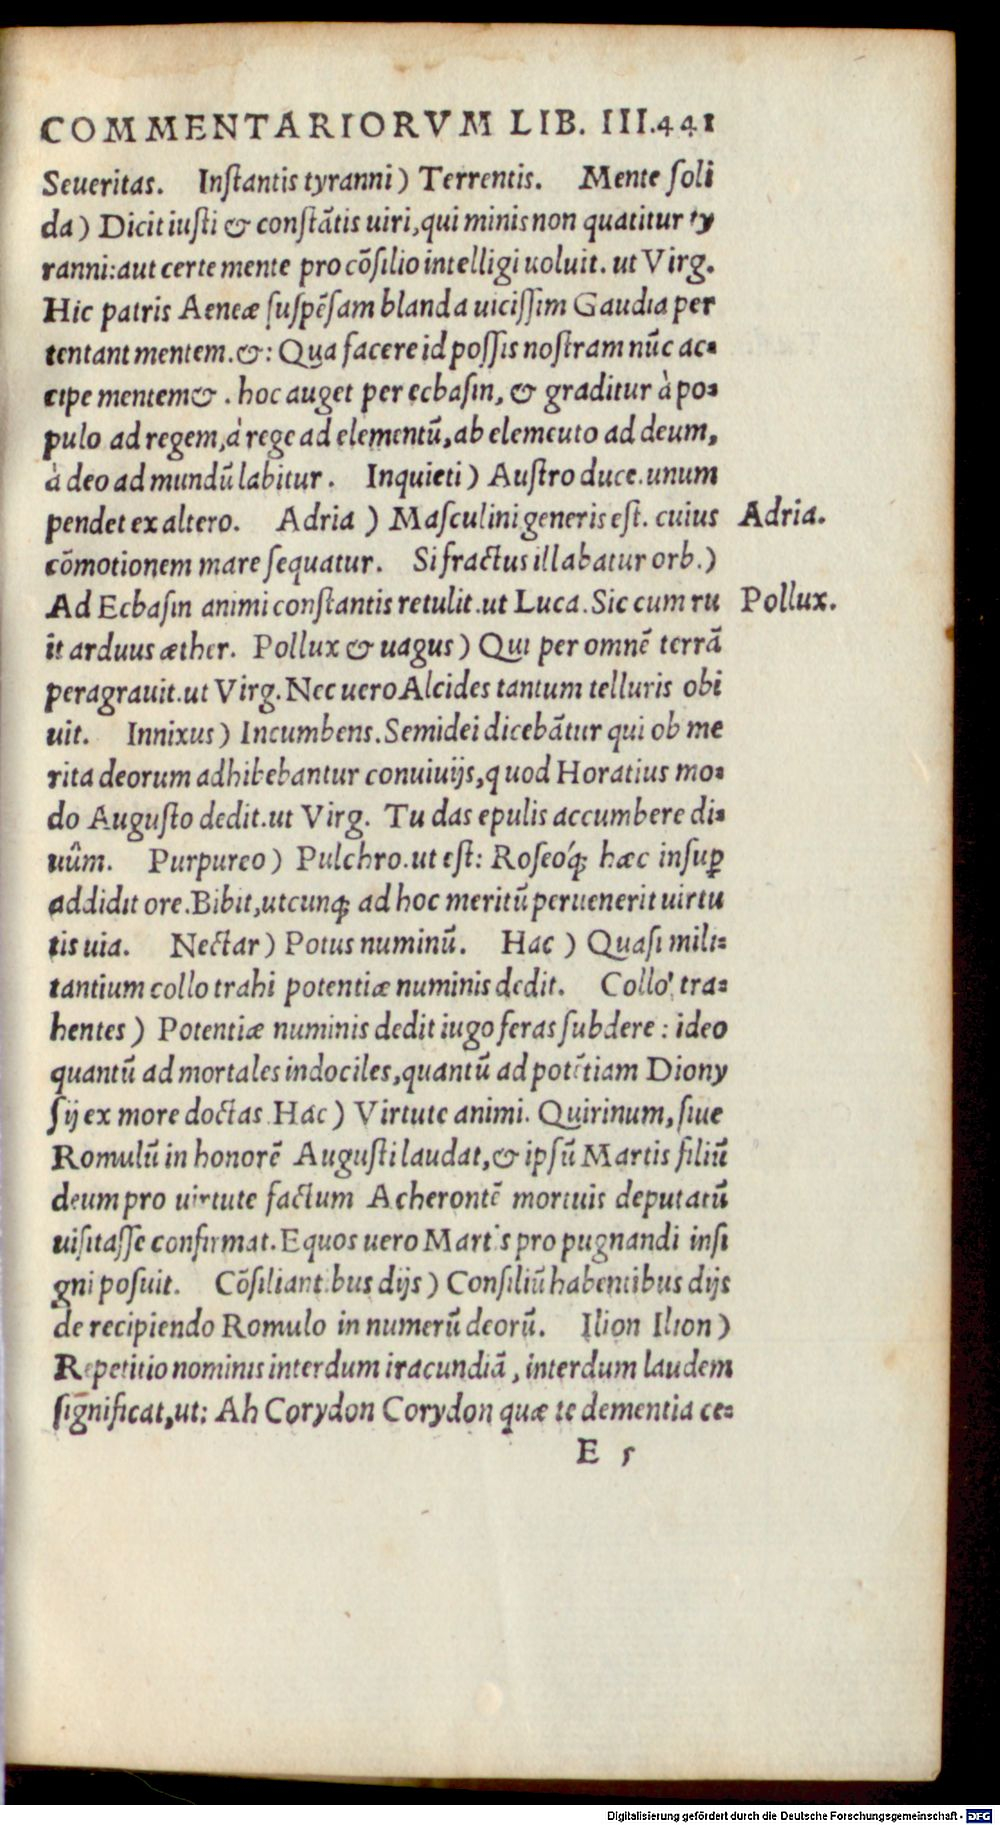 COMMENTARIORVM LIB. III.441
Seueritas. Instantis tyranni) Terrentis. Mente soli
da) Dicit iusti & constãtis uiri, qui minis non quatitur ty
ranni: aut certe mente pro cõsilio intelligi uoluit. ut Virg.
Hic patris Aeneæ suspẽsam blanda uicissim Gaudia per
tentant mentem. &: Qua facere id possis nostram nũc ac-
cipe mentem &. hoc auget per ecbasin, & graditur à po-
pulo ad regem, à rege ad elementũ, ab elemeuto ad deum,
à deo ad mundũ labitur. Inquieti) Austro duce. unum
pendet ex altero. Adria) Masculini generis est. cuius Adria.
cõmotionem mare sequatur. Si fractus illabatur orb.)
Ad Ecbasin animi constantis retulit. ut Luca. Sic cum ru Pollux.
it arduus æther. Pollux & uagus) Qui per omnẽ terrã
peragrauit. ut Virg. Nec uero Alcides tantum telluris obi
uit. Innixus) Incumbens. Semidei dicebãtur qui ob me
rita deorum adhibebantur conuiuijs, quod Horatius mo-
do Augusto dedit. ut Virg. Tu das epulis accumbere di-
uûm. Purpureo) Pulchro. ut est: Roseóq; hæc insup̱
addidit ore. Bibit, utcunq; ad hoc meritũ peruenerit uirtu
tis uia. Nectar) Potus numinũ. Hac) Quasi mili-
tantium collo trahi potentiæ numinis dedit. Collo tra-
hentes) Potentiæ numinis dedit iugo feras subdere: ideo
quantũ ad mortales indociles, quantũ ad potẽtiam Diony
sij ex more doctas. Hac) Virtute animi. Quirinum, siue
Romulũ in honorẽ Augusti laudat, & ipsũ Martis filiũ
deum pro uirtute factum Acherontẽ mortuis deputatũ
uisitasse confirmat. Equos uero Martis pro pugnandi insi
gni posuit. Cõsiliantibus dijs) Consiliũ habentibus dijs
de recipiendo Romulo in numerũ deorũ. Ilion Ilion)
Repetitio nominis interdum iracundiã, interdum laudem
significat, ut: Ah Corydon Corydon quæ te dementia ce-
E 5
Digitalisierung gefördert durch die Deutsche Forschungsgemeinschaft - DFG